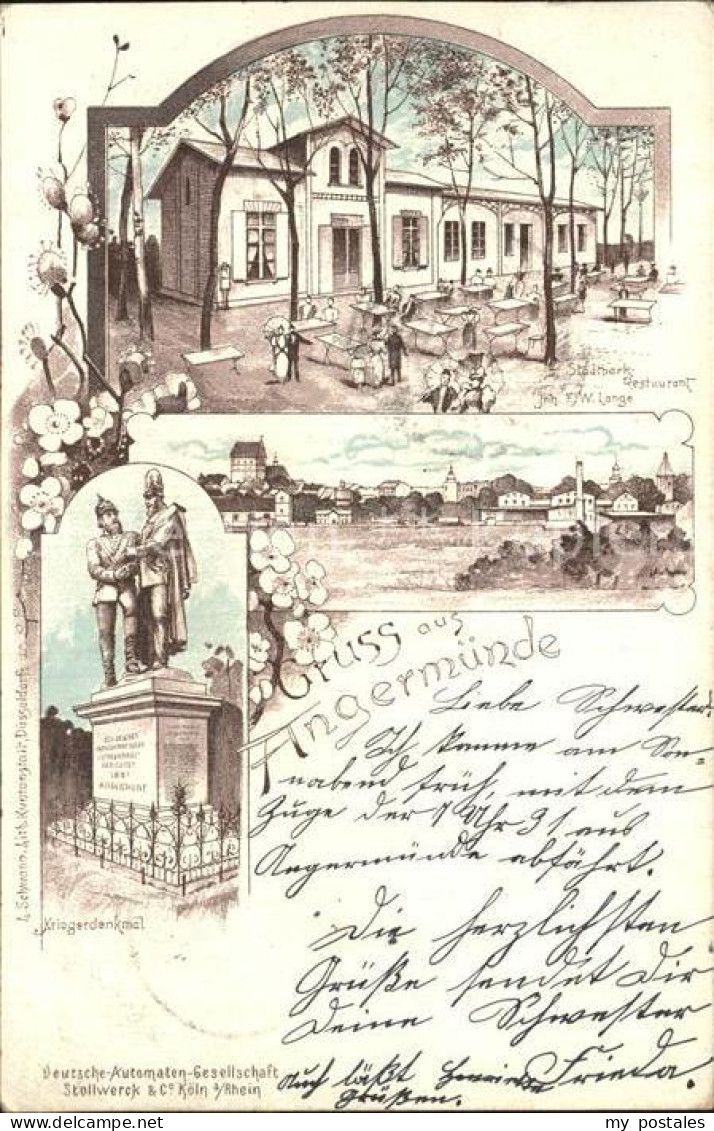 Stadtpark-
Restaurant
Jnh. F. W. Lange
Gruss aus
Angermünde
Liebe Schwester.
Ich komme am Son-
nabend früh, mit dem
Zuge der 7 Uhr 31 aus
Angermünde abfährt.
Die herzlichsten
Grüße sendet Dir
Deine Schwester
Frieda.
Auch läßt
grüßen.
ERRICHTET
Kriegerdenkmal
L. Schwann, Lith. Kunstanstalt, Düsseldorf.
Deutsche-Automaten-Gesellschaft
Stollwerck & Co Köln a/Rhein
my postales